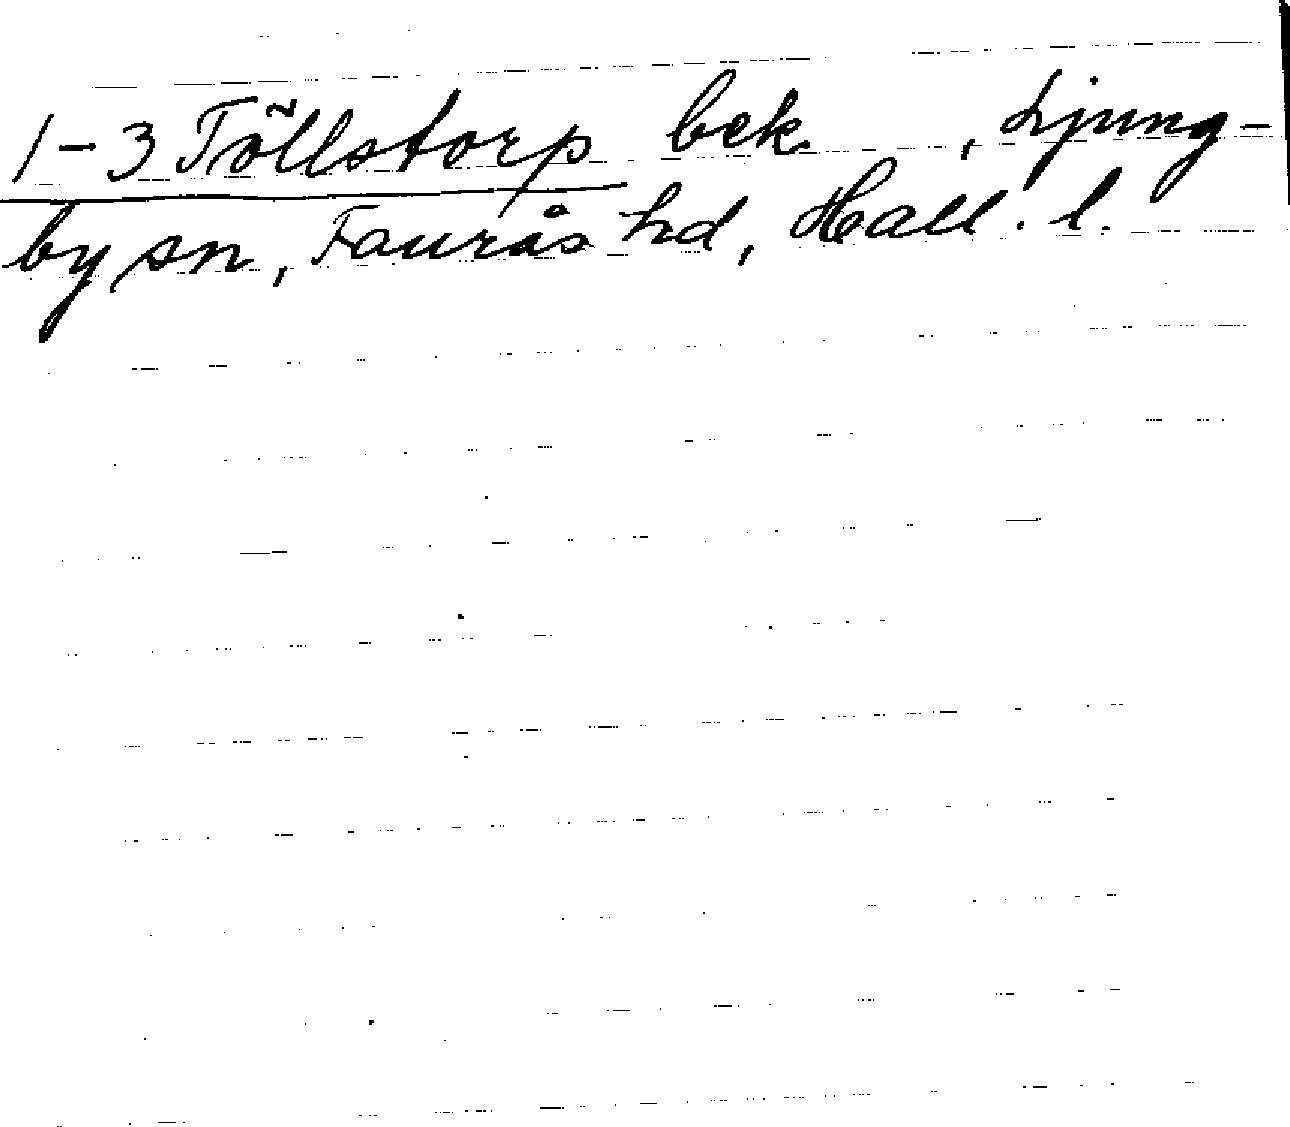 1-3 Töllstorp bek. , Ljung-
by sn, Faurås hd, Hall. l.